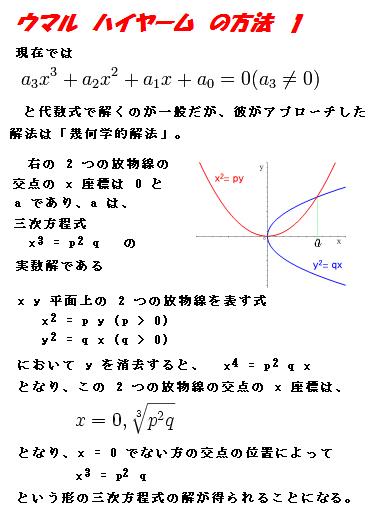 ウマル ハイヤーム の方法 1
現在では
a₃x³ + a₂x² + a₁x + a₀ = 0(a₃ ≠ 0)
と代数式で解くのが一般だが、彼がアプローチした
解法は「幾何学的解法」。
右の 2 つの放物線の
交点の x 座標は 0 と
a であり、a は、
三次方程式
x³ = p² q の
実数解である
y
x²= py
0
a
x
y²= qx
x y 平面上の 2 つの放物線を表す式
x² = p y (p > 0)
y² = q x (q > 0)
において y を消去すると、 x⁴ = p² q x
となり、この 2 つの放物線の交点の x 座標は、
x = 0, ∛(p²q)
となり、x = 0 でない方の交点の位置によって
x³ = p² q
という形の三次方程式の解が得られることになる。